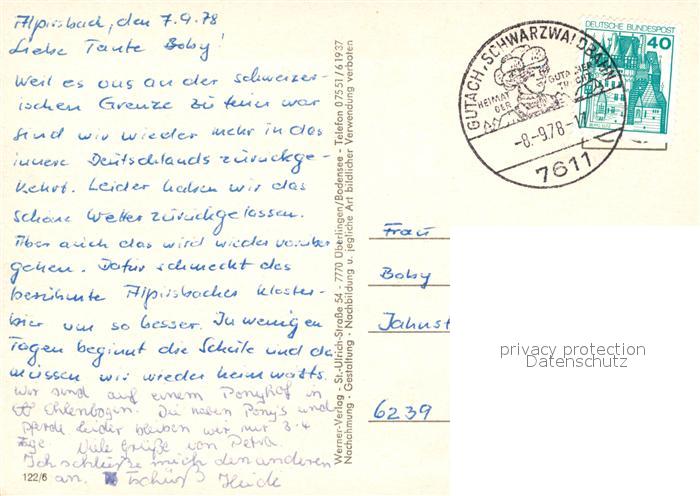 Alpirsbach, den 7.9.78
Liebe Tante Boby!
Weil es uns an der schweizer-
ischen Grenze zu teuer war
sind wir wieder mehr in das
innere Deutschlands zurückge-
kehrt. Leider haben wir das
schöne Wetter zurückgelassen.
Aber auch das wird wieder vorüber
gehen. Dafür schmeckt das
berühmte Alpirsbacher Kloster-
bier um so besser. In wenigen
Tagen beginnt die Schule und da
müssen wir wieder heimwärts.
Wir sind auf einem Ponyhof in
Ehlenbogen. Die haben Ponys und
Pferde leider bleiben wir nur 3-4
Tage. Viele Grüße von Petra.
Ich schließe mich den anderen
an. Tschüß Heidi
122/6
Werner-Verlag - St.-Ulrich-Straße 54 - 7770 Überlingen/Bodensee - Telefon 07551/61937
Nachahmung - Gestaltung - Nachbildung u. jegliche Art bildlicher Verwendung verboten
GUTACH, SCHWARZWALDBAHN
HEIMAT
DER
GUTACHER
TRACHT
-8.-9.78-
7611
DEUTSCHE BUNDESPOST
40
Frau
Boby
Jahnst
6239
privacy protection
Datenschutz